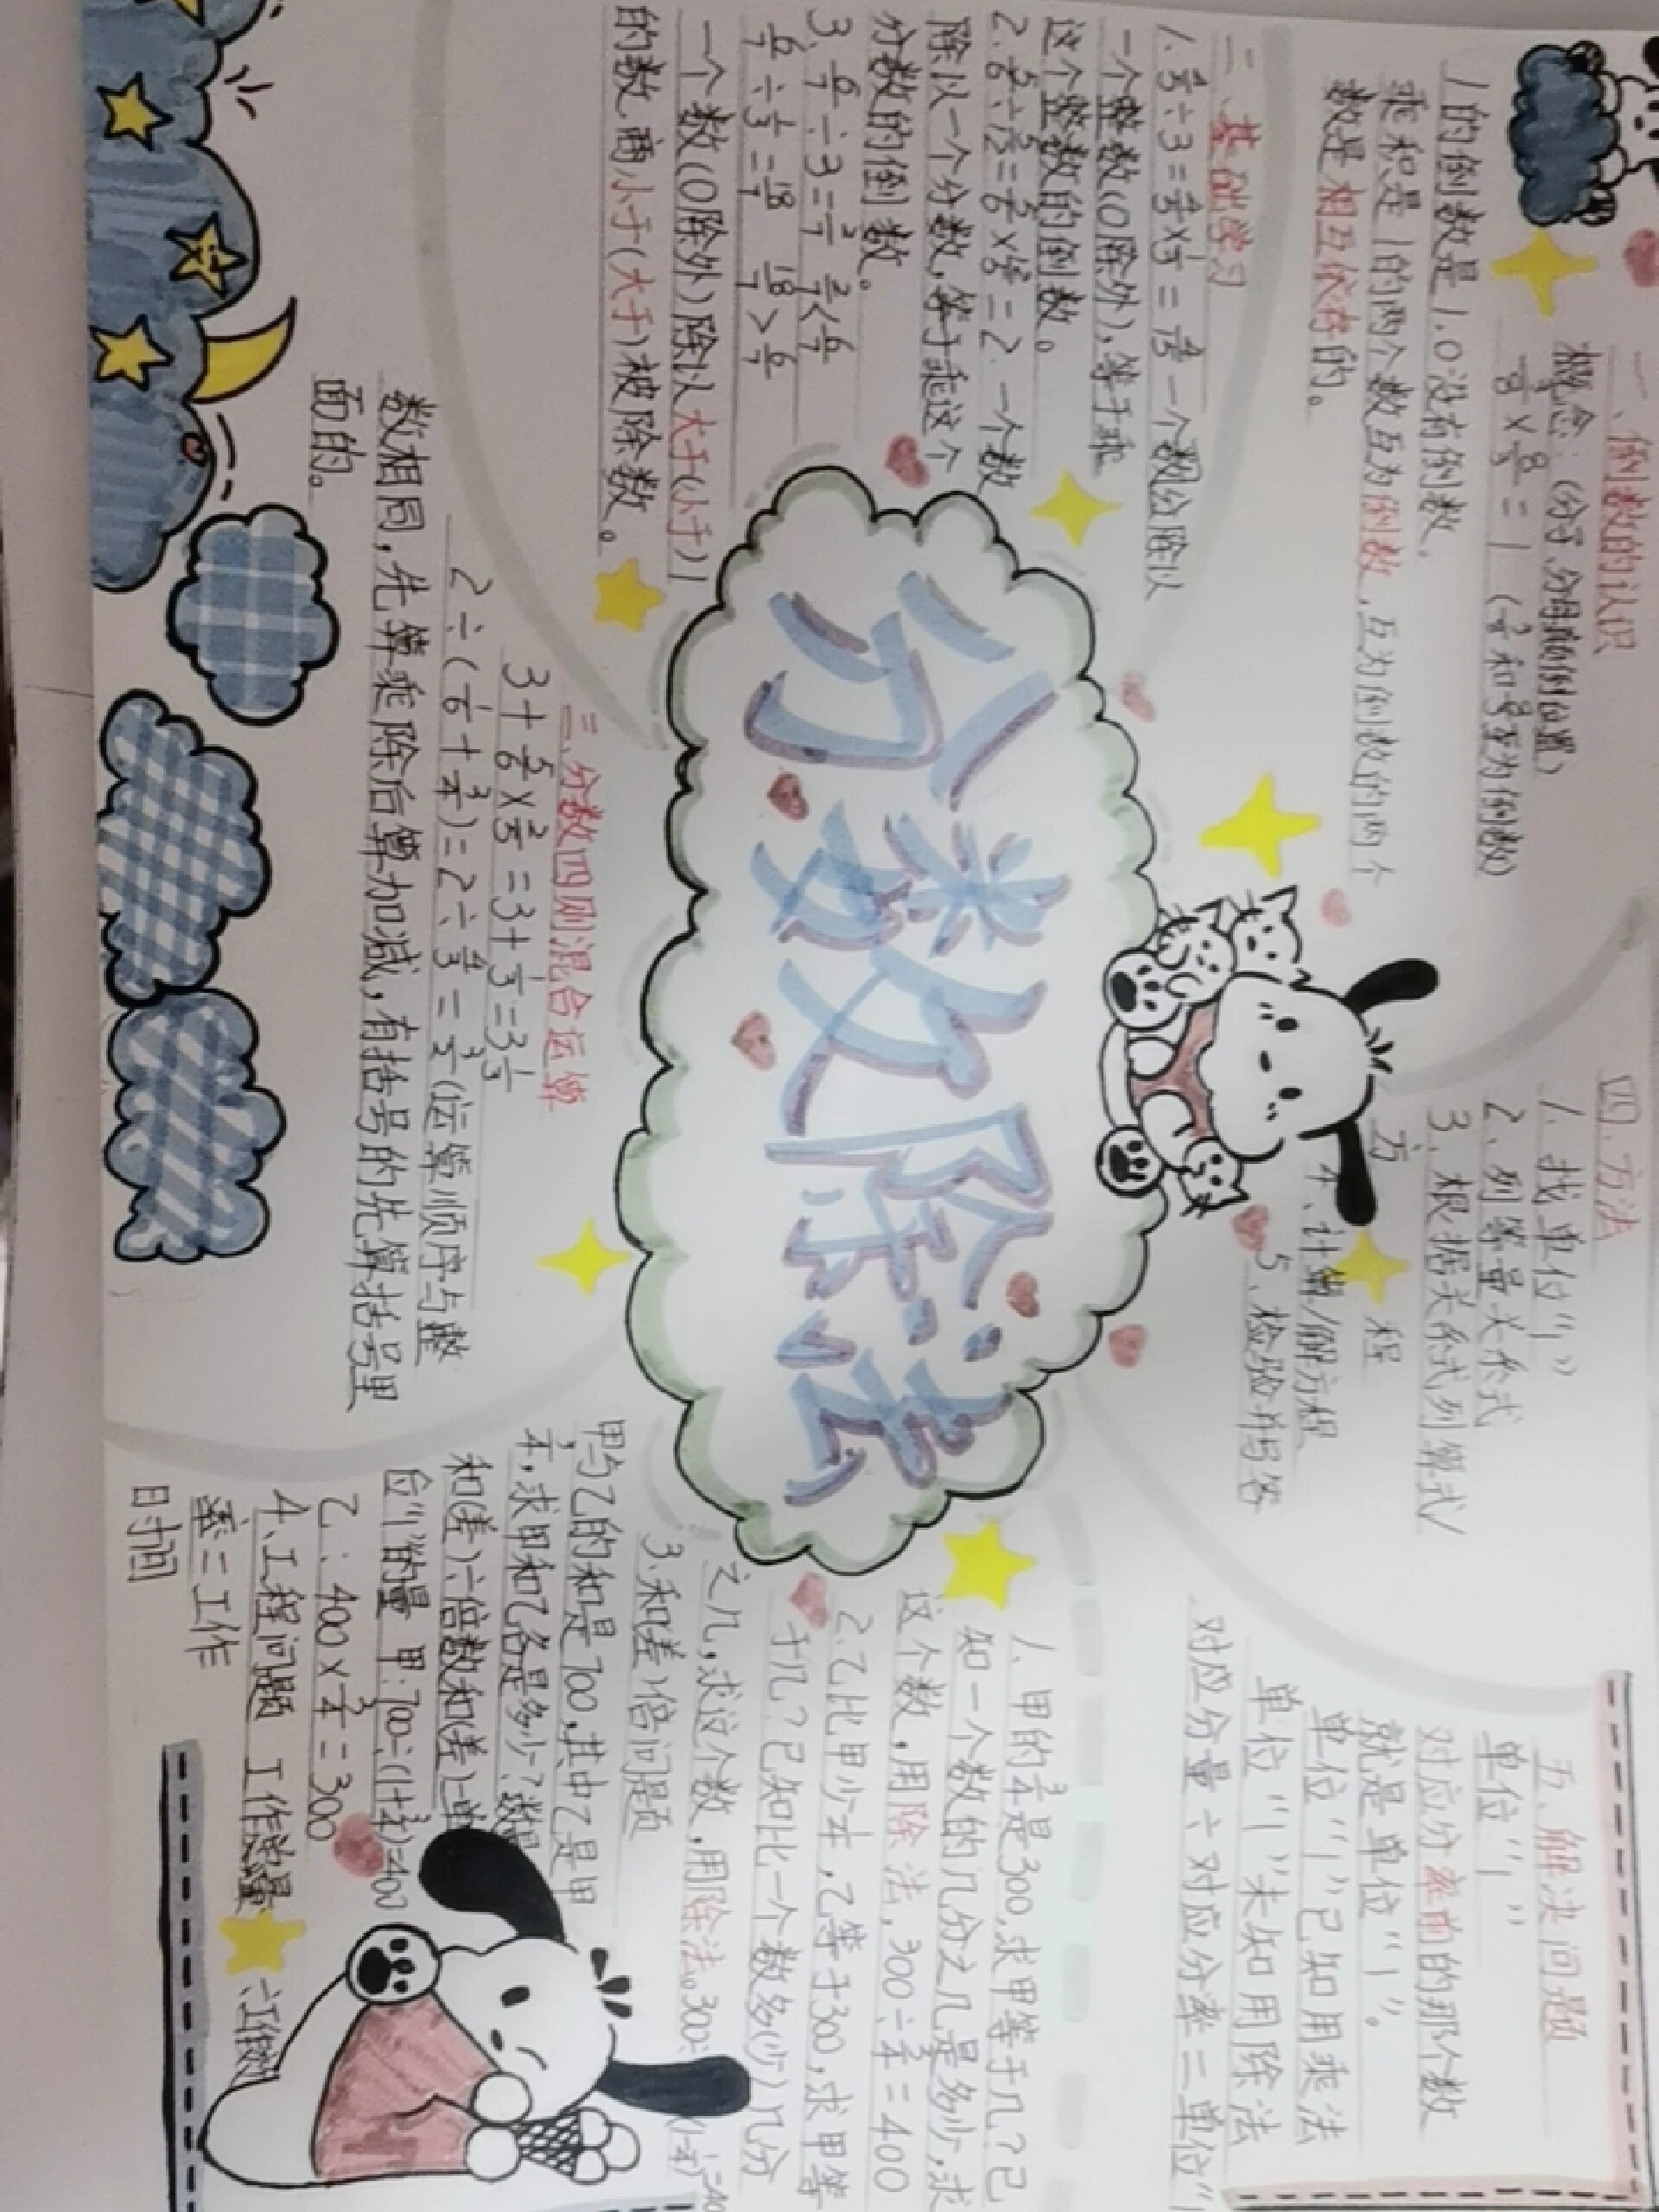 一、倒数的认识
概念:(分子、分母颠倒位置)
3/8×8/3=1 (3/8和8/3互为倒数)
1的倒数是1.0没有倒数。
乘积是1的两个数互为倒数,互为倒数的两个
数是相互依存的。
二、基础学习
一个整数(0除外),等于乘
这个整数的倒数。
=2. 一个数
除以一个分数,等于乘这个
分数的倒数。
3. 6/7÷3=2/7 2/7<6/7
6/7÷1/3=18/7 18/7>6/7
一个数(0除外)除以大于(小于)1
的数,商小于(大于)被除数。
分数除法
三、分数四则混合运算
3+5/6×2/5=3+1/3=3 1/3
(运算顺序与整
数相同,先算乘除后算加减,有括号的先算括号里
面的。
四、方法
1、找单位“1”
2、列等量关系式
3、根据关系式,列算式/
方 程
4、计算/解方程
5、检验并写答
五、解决问题
单位“1”
对应分率前的那个数
就是单位“1”。
单位“1”已知用乘法
单位“1”未知用除法
对应分量÷对应分率=单位“1”
1、甲的3/4是300,求甲等于几?已
知一个数的几分之几是多少,求
这个数,用除法,300÷3/4=400
2、乙比甲少1/4,乙等于300,求甲等
于几?已知比一个数多(少)几分
之几,求这个数,用除法。300÷(1-1/4)=400
3、和(差)倍问题
甲与乙的和是700,其中乙是甲
3/4,求甲和乙各是多少?
和(差)÷倍数和(差)=单
位“1”的量 甲:700÷(1+3/4)=400
乙:400×3/4=300
4、工程问题 工作总量÷工作效
率=工作
时间